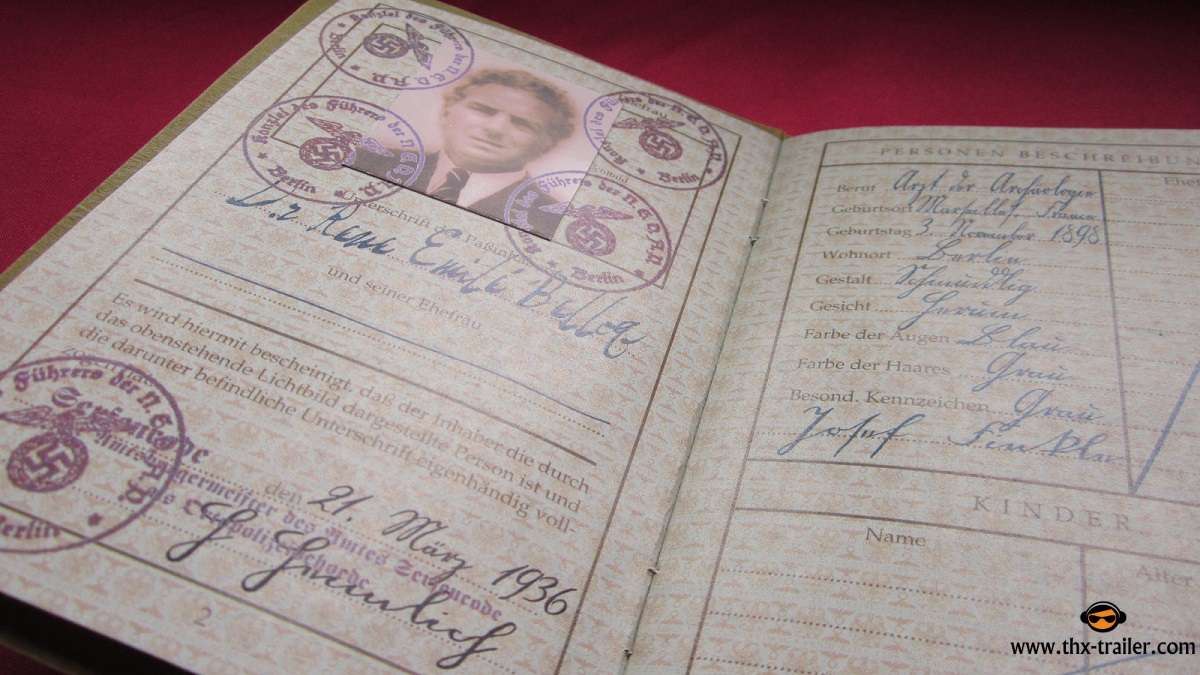 Kanzlei des Führers der N.S.D.A.P.
Berlin
Kanzlei des Führers der N.S.D.A.P.
Berlin
Ehefrau
Kanzlei des Führers der N.S.D.A.P.
Berlin
Lichtbild
Kanzlei des Führers der N.S.D.A.P.
Berlin
Unterschrift des Paßinhabers
Dr Rene Emile Belloq
und seiner Ehefrau
Es wird hiermit bescheinigt, daß der Inhaber die durch
das obenstehende Lichtbild dargestellte Person ist und
die darunter befindliche Unterschrift eigenhändig voll-
Führers der N.S.D.A.P.
Berlin
den 21. März 1936
des Amtes
2
PERSONEN BESCHREIBUN
Beruf Arzt der Archeologie
Geburtsort Marseilles, France
Geburtstag 3. November 1898
Wohnort Berlin
Gestalt
Gesicht
Farbe der Augen Blau
Farbe der Haares Grau
Besond. Kennzeichen Grau
Josef
KINDER
Name
Alter
www.thx-trailer.com